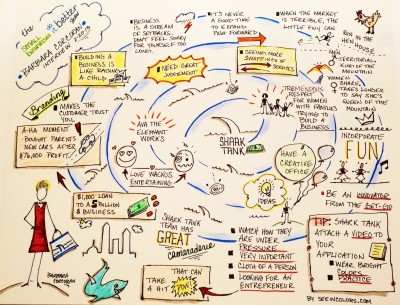 the
Smart
Business
better
BARBARA CORCORAN
INTERVIEW
• BUSINESS
IS A STREAM OF
SETBACKS,
DON'T FEEL SORRY
FOR YOURSELF TOO
LONG.
• IT'S NEVER
A GOOD TIME
TO EXPAND.
PUSH FORWARD
• WHEN THE MARKET
IS TERRIBLE, THE
LITTLE FUN GAL
BUILDING A
BUSINESS IS
LIKE RAISING
A CHILD
NEED GREAT
JUDGEMENT
SEEING MORE
SWAPPING OF
SERVICES
RUN IN THE
HOUSE
MEN =
TERRITORIAL
KING OF THE
MOUNTAIN
WOMEN =
SHARERS
TAKES LONGER
TO SAY SHE'S
QUEEN OF THE
MOUNTAIN
Branding
MAKES THE
CUSTOMER TRUST
YOU
AVA THE
ELEPHANT
WORKS
TREMENDOUS
RESPECT
FOR WOMEN WITH
FAMILIES
TRYING TO
BUILD A
BUSINESS
A-HA MOMENT
BOUGHT PARENTS
NEW CARS AFTER
$76,000 PROFIT
SHARK
TANK
INCORPORATE
FUN
LOVE WACKOS
ENTERTAINING
HAVE A
CREATIVE
OFFICE
IDEAS
$1,000 LOAN
TO A 5 BILLION
$ BUSINESS
SHARK TANK
TEAM HAS
GREAT
camaraderie
BE AN INNOVATOR
FROM THE GET-GO
WATCH HOW THEY
ARE UNDER
PRESSURE
VERY IMPORTANT
CLOTH OF A PERSON
LOOKING FOR AN
ENTREPRENEUR
TAKE
A HIT
THAT CAN
TIP: SHARK TANK
ATTACH A VIDEO TO
YOUR
APPLICATION
WEAR BRIGHT
COLORS
PRACTICE
BARBARA
CORCORAN
BY SEEINCOLORS.COM